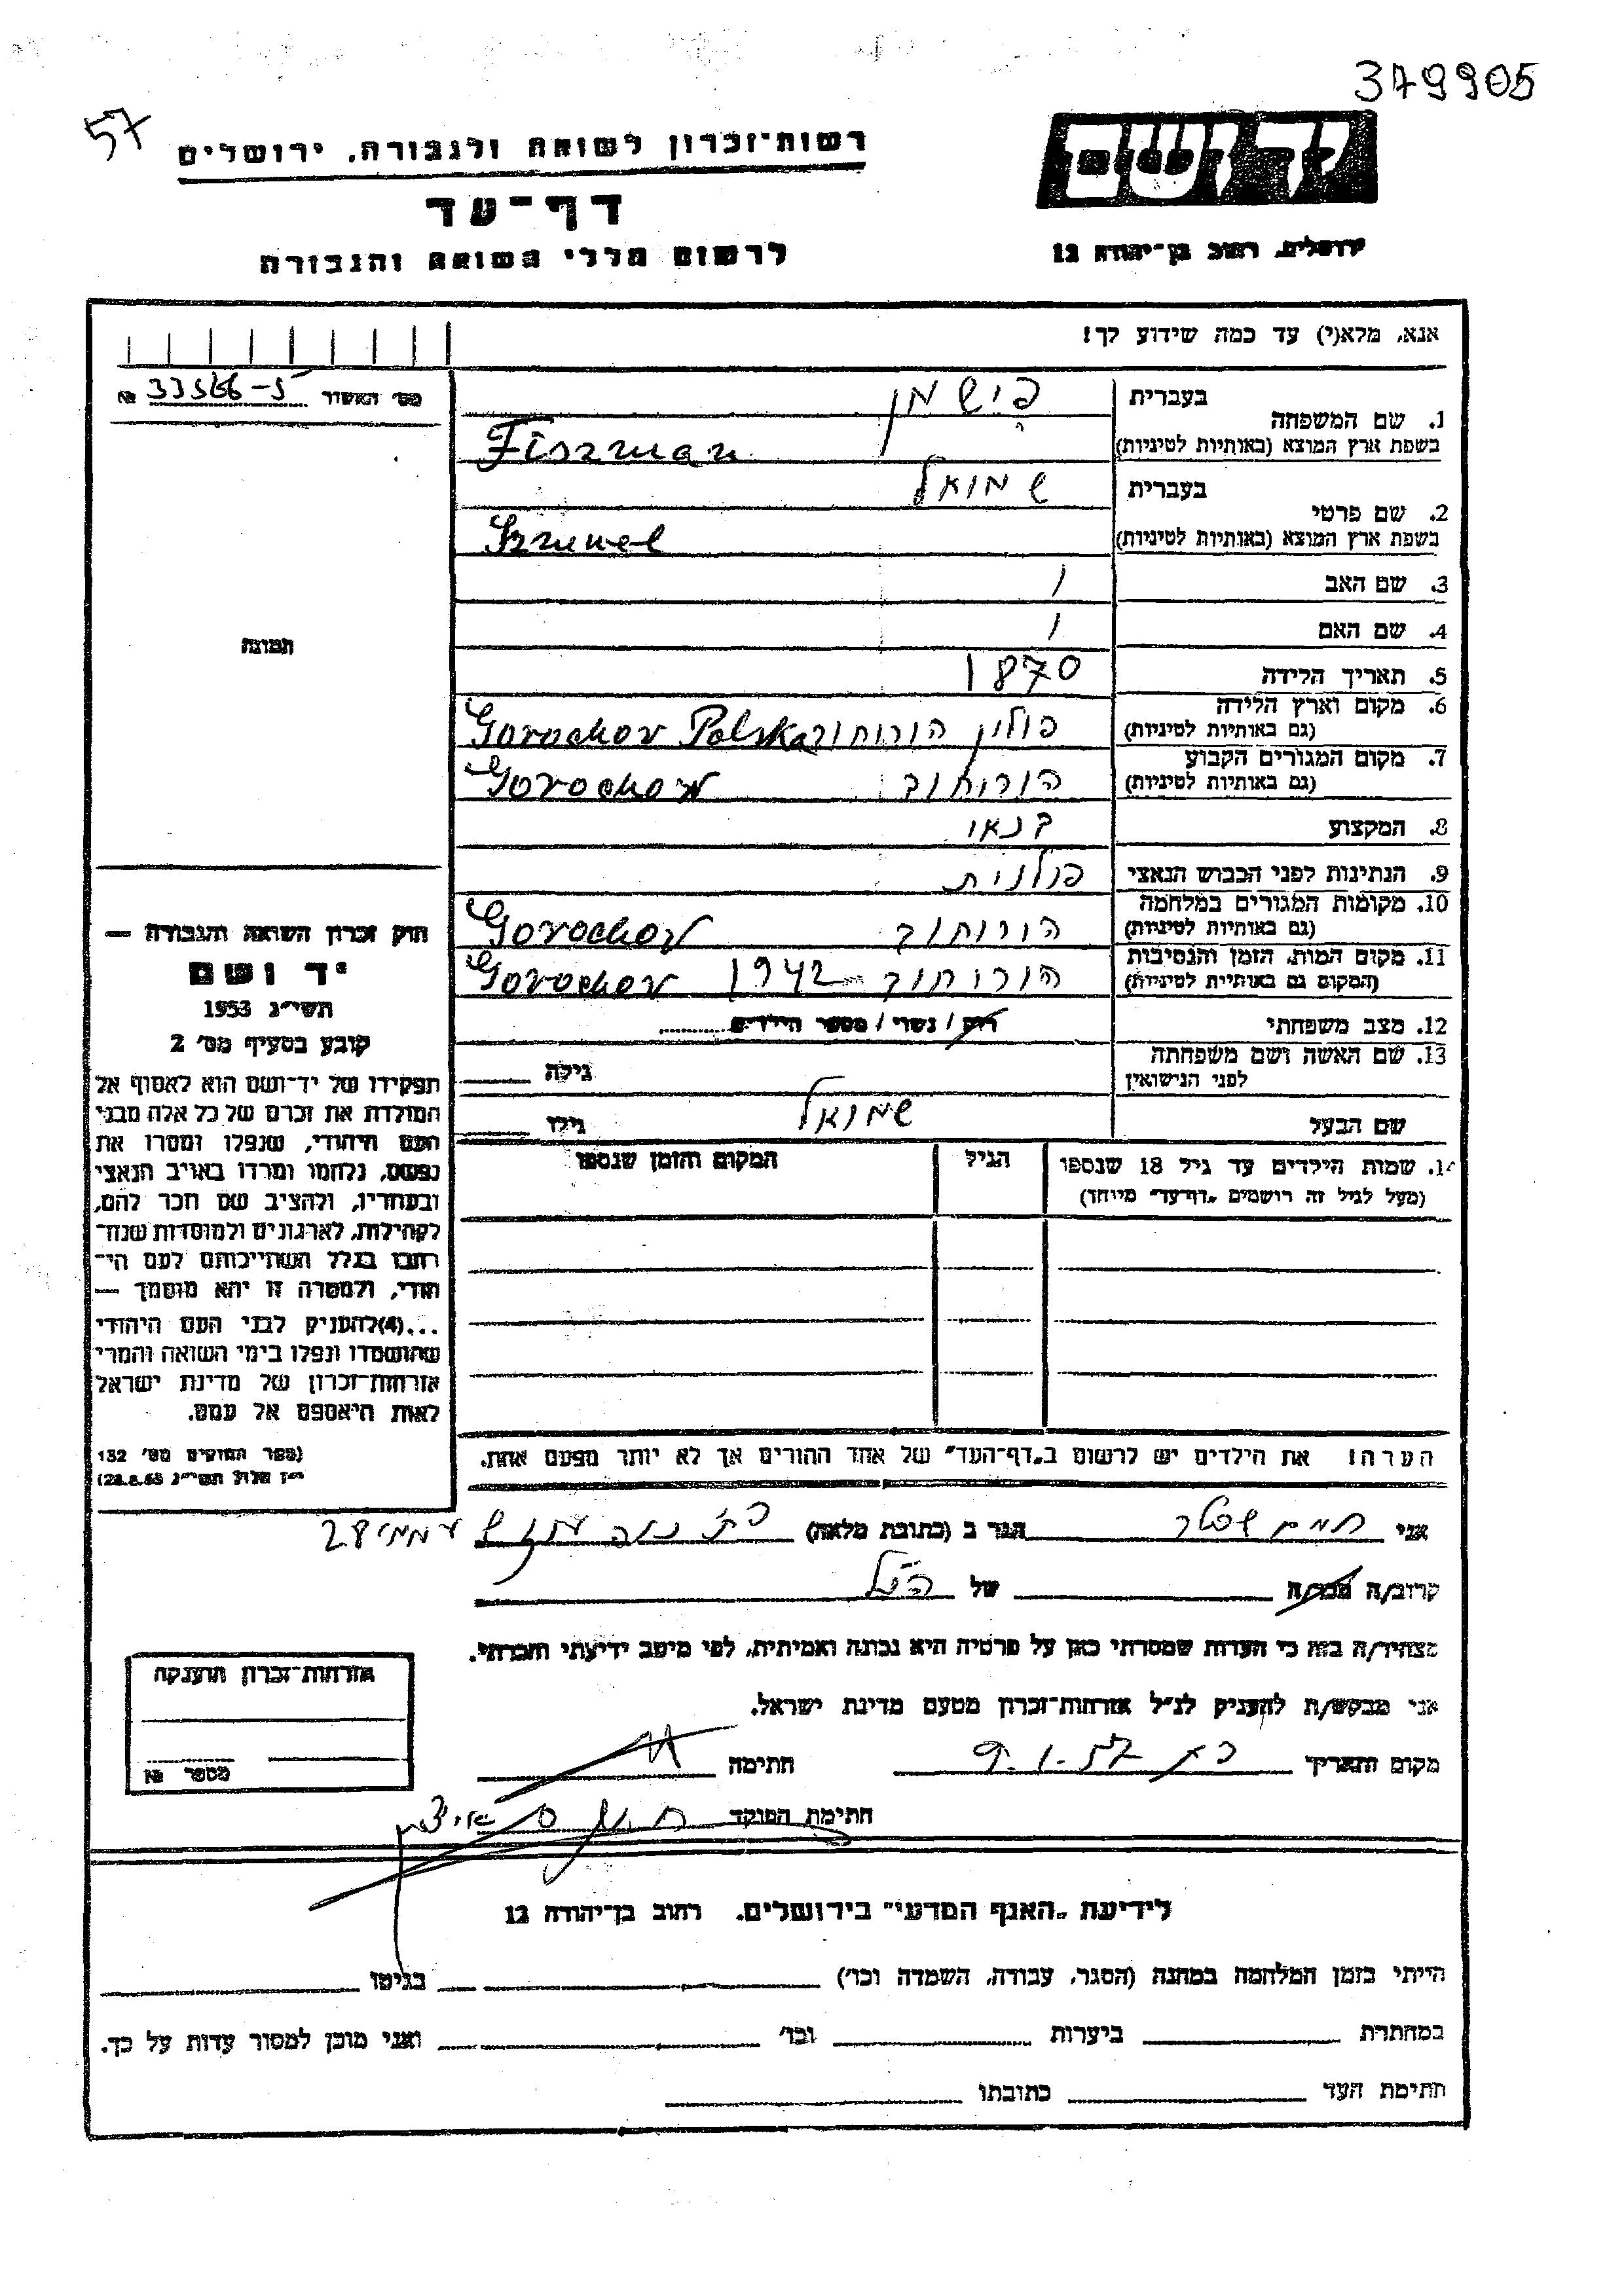 379905
57
יד ושם
רשות־זכרון לשואה ולגבורה, ירושלים
דף־עד
לרשום חללי השואה והגבורה
ירושלים, רחוב בן־יהודה 12
אנא, מלא(י) עד כמה שידוע לך!
מס׳ האשור № 33566-5
1. שם המשפחה
בעברית פישמן
בשפת ארץ המוצא (באותיות לטיניות) Fiszman
2. שם פרטי
בעברית שמואל
בשפת ארץ המוצא (באותיות לטיניות) Szmuel
3. שם האב /
4. שם האם /
5. תאריך הלידה 1870
6. מקום וארץ הלידה
(גם באותיות לטיניות) פולין הורוחוב Gorochov Polska
7. מקום המגורים הקבוע
(גם באותיות לטיניות) הורוחוב Gorochow
8. המקצוע בנאי
9. הנתינות לפני הכבוש הנאצי פולנית
10. מקומות המגורים במלחמה
(גם באותיות לטיניות) הורוחוב Gorochov
11. מקום המות, הזמן והנסיבות
(המקום גם באותיות לטיניות) הורוחוב - 1942 Gorochov
12. מצב משפחתי רווק / נשוי / מספר הילדים
13. שם האשה ושם משפחתה
לפני הנישואין
גילה
שם הבעל שמואל גילו
14. שמות הילדים עד גיל 18 שנספו
(מעל לגיל זה רושמים „דף־עד” מיוחד)
הגיל
המקום והזמן שנספו
הערה: את הילדים יש לרשום ב„דף־העד” של אחד ההורים אך לא יותר מפעם אחת.
תמונה
חוק זכרון השואה והגבורה —
יד ושם
תשי״ג 1953
קובע בסעיף מס׳ 2
תפקידו של יד־ושם הוא לאסוף אל
המולדת את זכרם של כל אלה מבני
העם היהודי, שנפלו ומסרו את
נפשם, נלחמו ומרדו באויב הנאצי
ובעוזריו, ולהציב שם וזכר להם,
לקהילות, לארגונים ולמוסדות שנח־
רבו בגלל השתייכותם לעם הי־
הודי, ולמטרה זו יהא מוסמך —
...(4) להעניק לבני העם היהודי
שהושמדו ונפלו בימי השואה והמרי
אזרחות־זכרון של מדינת ישראל
לאות היאספם אל עמם.
(ספר החוקים מס׳ 132
י״ז אלול תשי״ג 28.8.53)
אני חיים הגר ב (כתובת מלאה) 28
קרוב/ה מכר/ה של הנ״ל
מצהיר/ה בזה כי העדות שמסרתי כאן על פרטיה היא נכונה ואמיתית, לפי מיטב ידיעתי והכרתי.
אני מבקש/ת להעניק לנ״ל אזרחות־זכרון מטעם מדינת ישראל.
מקום ותאריך 9.1.57 חתימה
חתימת הפוקד
אזרחות־זכרון הוענקה
מספר №
לידיעת „האגף המדעי” בירושלים, רחוב בן־יהודה 12
הייתי בזמן המלחמה במחנה (הסגר, עבודה, השמדה וכו׳) בגיטו
במחתרת ביערות וכו׳ ואני מוכן למסור עדות על כך.
חתימת העד כתובתו